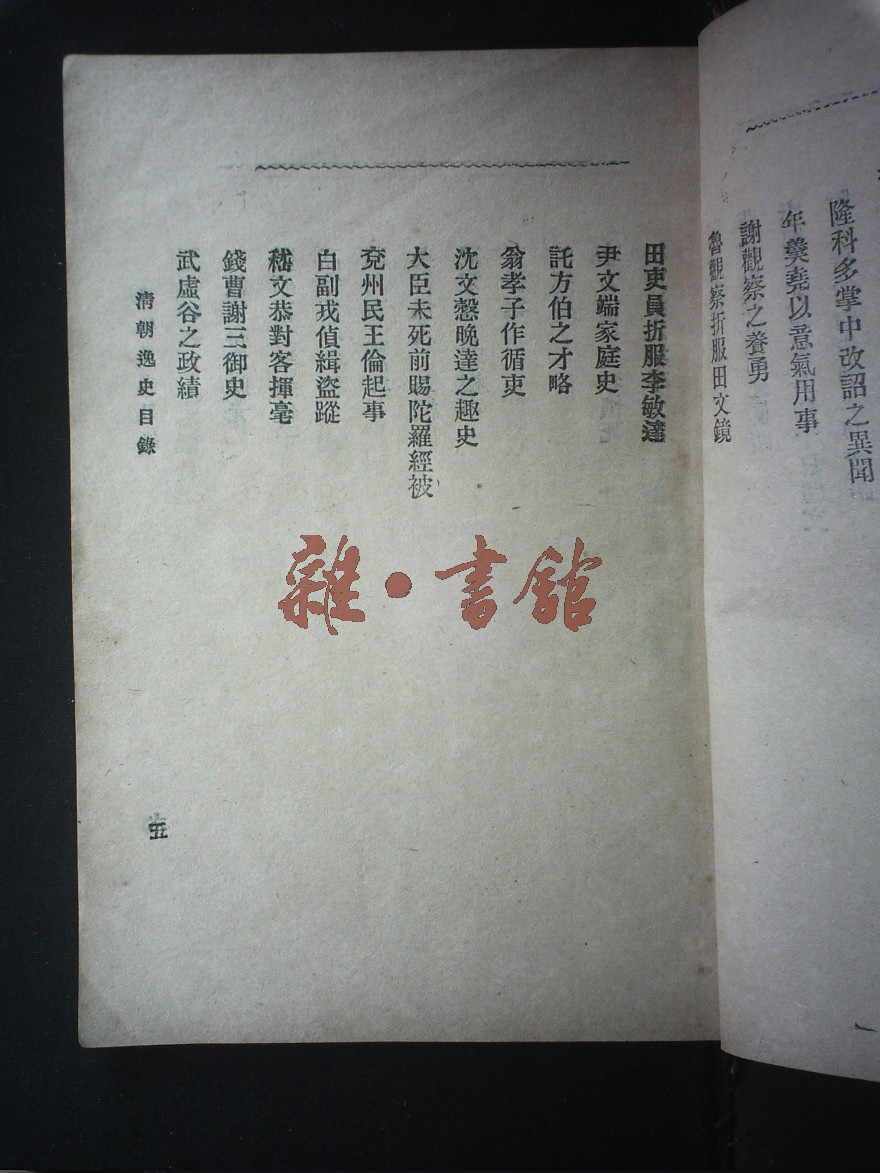 隆科多掌中改詔之異聞
年羹堯以意氣用事
謝觀察之養勇
魯觀察折服田文鏡
田吏員折服李敏達
尹文端家庭史
託方伯之才略
翁孝子作循吏
沈文慤晚達之趣史
大臣未死前賜陀羅經被
兗州民王倫起事
白副戎偵緝盜蹤
嵇文恭對客揮毫
錢曹謝三御史
武虛谷之政績
清朝逸史目錄
五
雜·書館